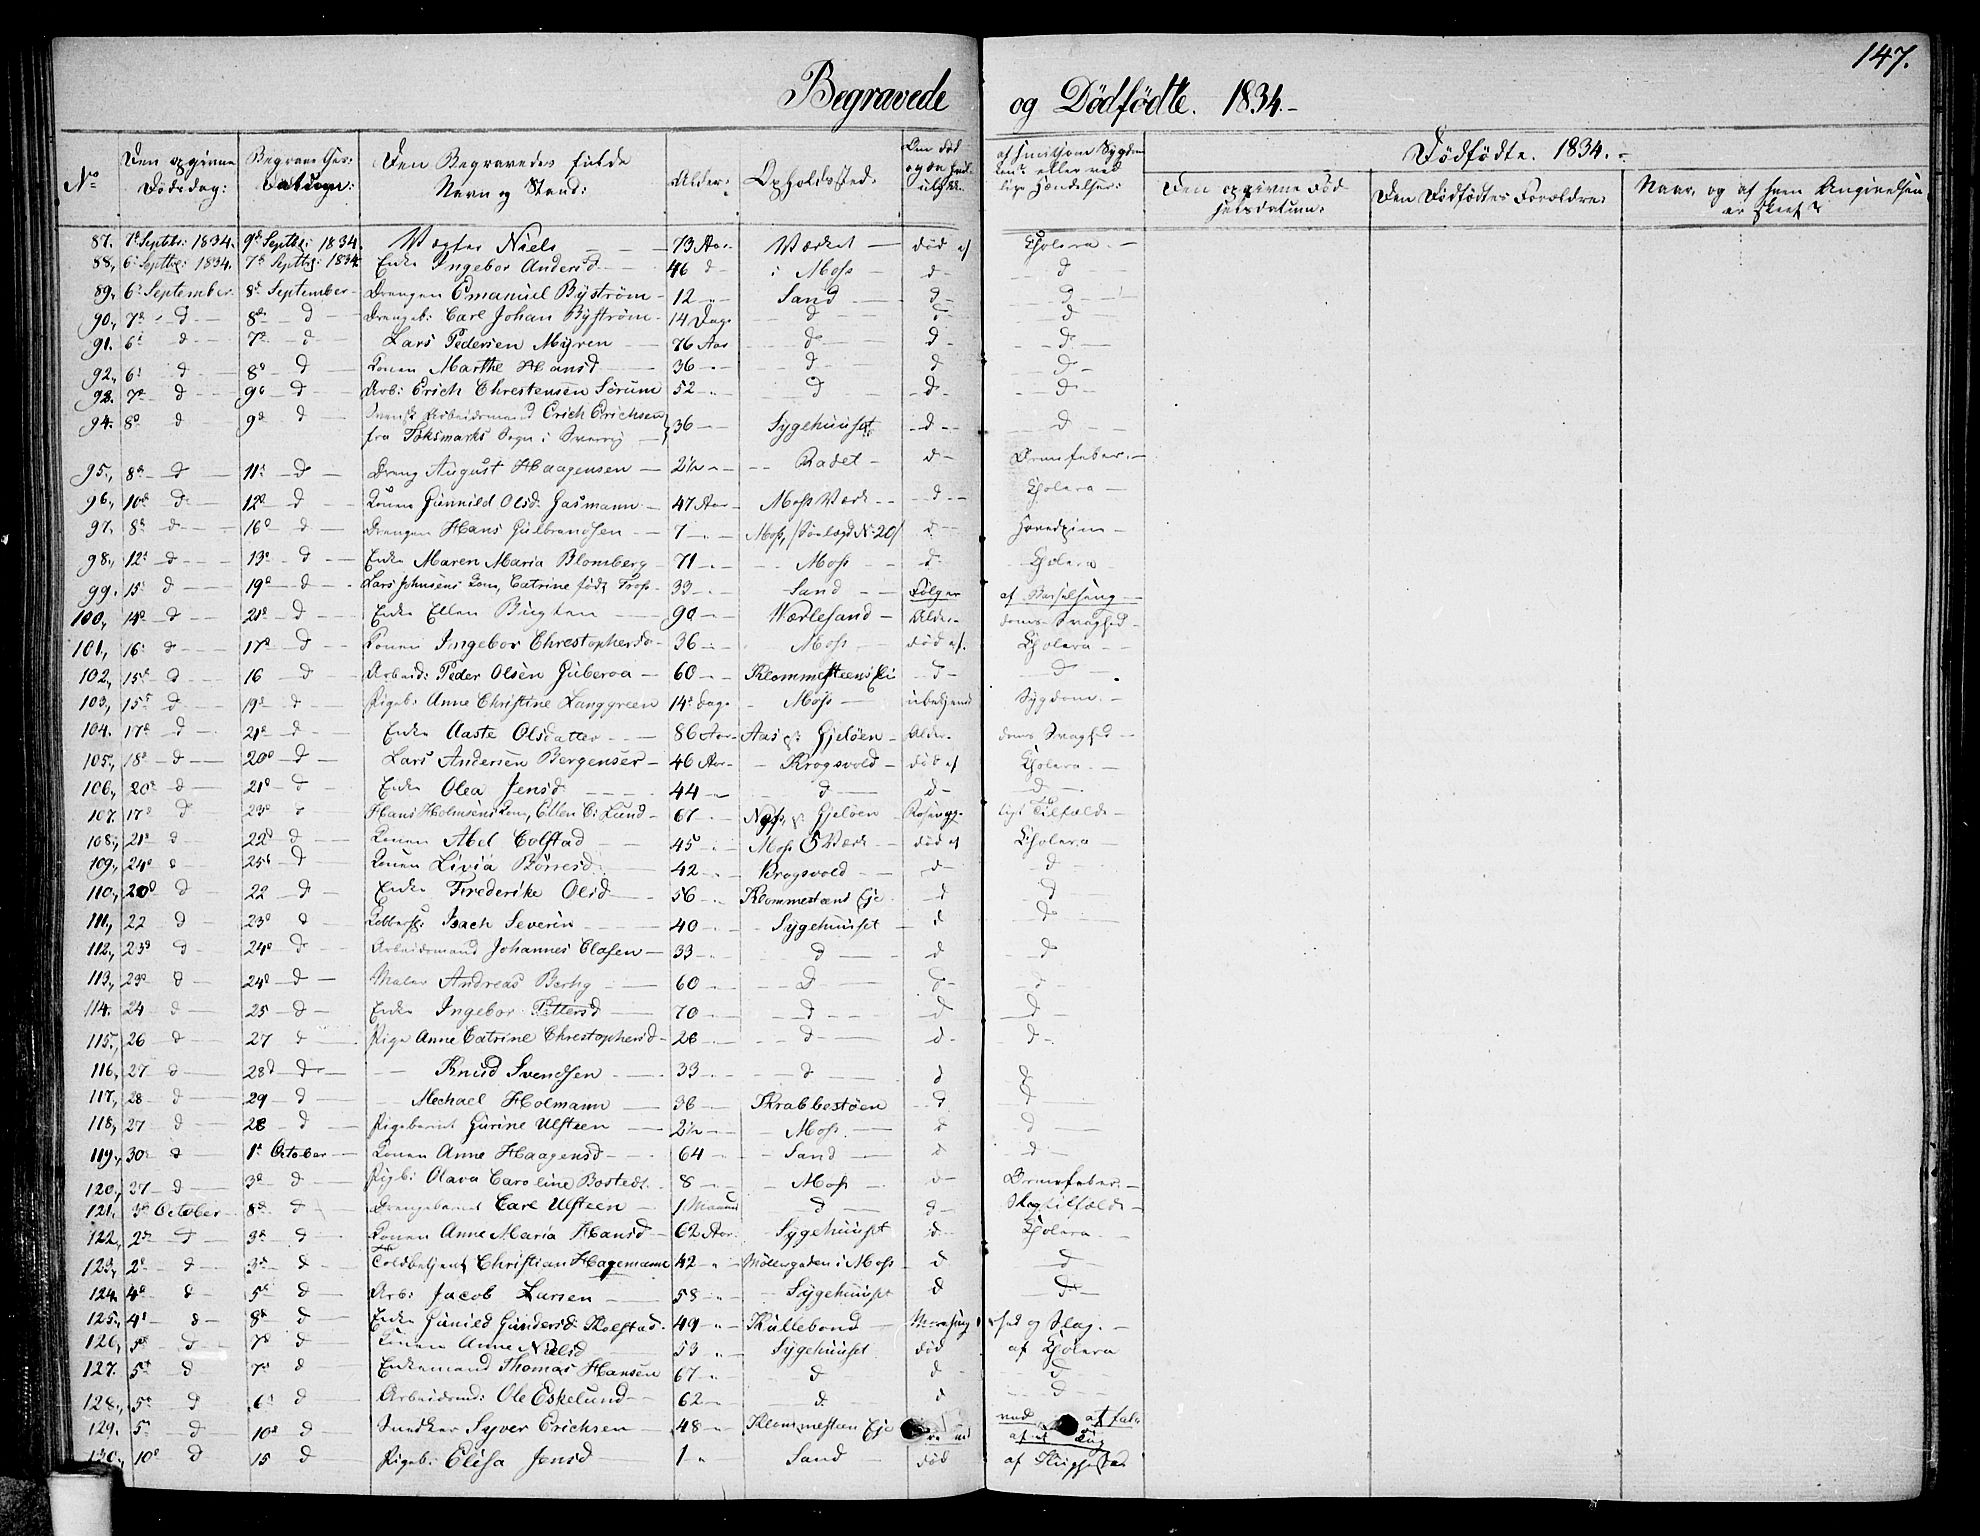 147.
Begravede og Dödfödte. 1834.
No Den opgivne Dödsdag: Begravelses: Datum: Den Begravedes fulde Navn og Stand: Alder: Opholdssted.
Dödfödte. 1834.
Den opgivne Födselsdatum: Den Dödfödtes Forældre: Naar, og af hvem Angivelsen er skeet?
87. 7d Septbr: 1834. 9d Septbr: 1834. Vægter Niels 73 Aar Værket död af Cholera.
88, 6d Septbr: 1834. 7d Septbr: 1834. Enke Ingebor Andersd 46 d i Moss d d
89, 6d September 8d September Drengen Emanuel Byström 12 Sand d d
90, 7d d 8d d Drengeb: Carl Johan Byström 14 Dage d d d
91. 6d d 7d d Lars Pedersen Myren 76 Aar d d d
92, 6d d 8d d Konen Marthe Hansd 36 d d d
93. 7d d 9d d Arb: Erich Chrestensen Sörum 52 d d d
94. 8d d 9d d Svensk Arbeidsmand Erich Erichsen 36 Sygehuuset d d
fra Sogn i Sverrig
95, 8d d 11d d Dreng August Haagensen 2½ Radet d Ormefeber.
96, 10d d 12d d Konen Gunnild Olsd. Gasmann 47 Aar Moss Værk d Cholera
97. 8d d 16d d Drengen Hans Gulbrandsen 7 Moss, No 20/ d Hovedpine
98, 12d d 13d d Enke Maren Maria Blomberg 71 Moss d Cholera
99. 15d d 19d d Lars Johnsens Kone, Catrine föd Fross 33 Sand Fölger af Barselseng
100, 14d d 21d d Enke Ellen Bugten 90 Værlesand Alderdoms Svaghed
101, 16d d 17d d Konen Ingebor Chrestophersd 36 Moss död af. Cholera
102, 15d d 16 d Arbeid: Peder Olsen Guberoa 60 Klommesteens Eie d d
103, 15d d 19d d Pigeb: Anne Christine Langgreen 14d Dage Moss ubekjend Sygdom.
104. 17d d 21d d Enke Aaste Olsdatter 86 Aar Aas p: Gjelöen Alderdoms Svaghed
105, 18d d 20d d Lars Andersen Bergenser 46 Aar Krogsvold död af Cholera.
106, 20d d 21d d Enke Olea Jensd 44 d d d
107. 17d d 23d d Hans Holmsens Kone, Ellen C: Lund 67 p: Gjelöen Tilfælde
108, 21d d 22d d Konen Abel Colstad 45 Moss Værk död af Cholera
109, 24d d 25d d Konen Livia Börresd. 42 Krogsvold d d
110, 20d d 22 d Enke Frederike Olsd 56 Klommesteens Eje d d
111, 22 d 23d d Isach Severin 40 Sygehuuset d d
112, 23d d 24d d Arbeidsmand Johannes Clasen 33 d d d
113, 23d d 24d d Maler Andreas 60 d d d
114. 24 d 25 d Enke Ingebor Pettersd 70 d d d
115, 26 d 27 d Pige Anne Catrine Chrestophersd 28 d d d
116, 27 d 28d d Knud Svendsen 33 d d d
117, 28 d 29 d Mechael Holmann 36 Krabbestöen d d
118, 27 d 28 d Pigebarnet Gurine Ulsteen 2½ Moss. d d
119, 30d d 1d October Konen Anne Haagensd 64 Sand d d
120, 27 d 3d d Pigb: Olava Caroline Bostedt. 8 Moss d Ormefeber.
121. 3d October 8d d Drengebarnet Carl Ulsteen 1 Maaned d d Slagtilfælde
122, 2d d 3d d Konen Anne Maria Hansd 62 Aar. Sygehuuset d Cholera
123, 2d d 3d d Toldbetjent Christian Hagemann 42 Möllegaden i Moss d d
124. 4d d 5d d Arb: Jacob Larsen 58 Sygehuuset d d
125, 4d d 8d d Enke Gunild Gundersd. Kolstad. 49 Kullebond og Slag.
126, 5d d 7d d Konen Anne Nielsd 53 Sygehuuset död af Cholera
127. 5d d 7d d Enkemand Thomas Hansen 67 d d d
128, 5d d 6d d Arbeidsmd: Ole Eskelund 62 d. d d
129. 5d d 10d d Snedker Syver Erichsen 48 Klommesteen Eje
130, 10d d 15 d Pigeb: Elisa Jensd 1 Sand död af